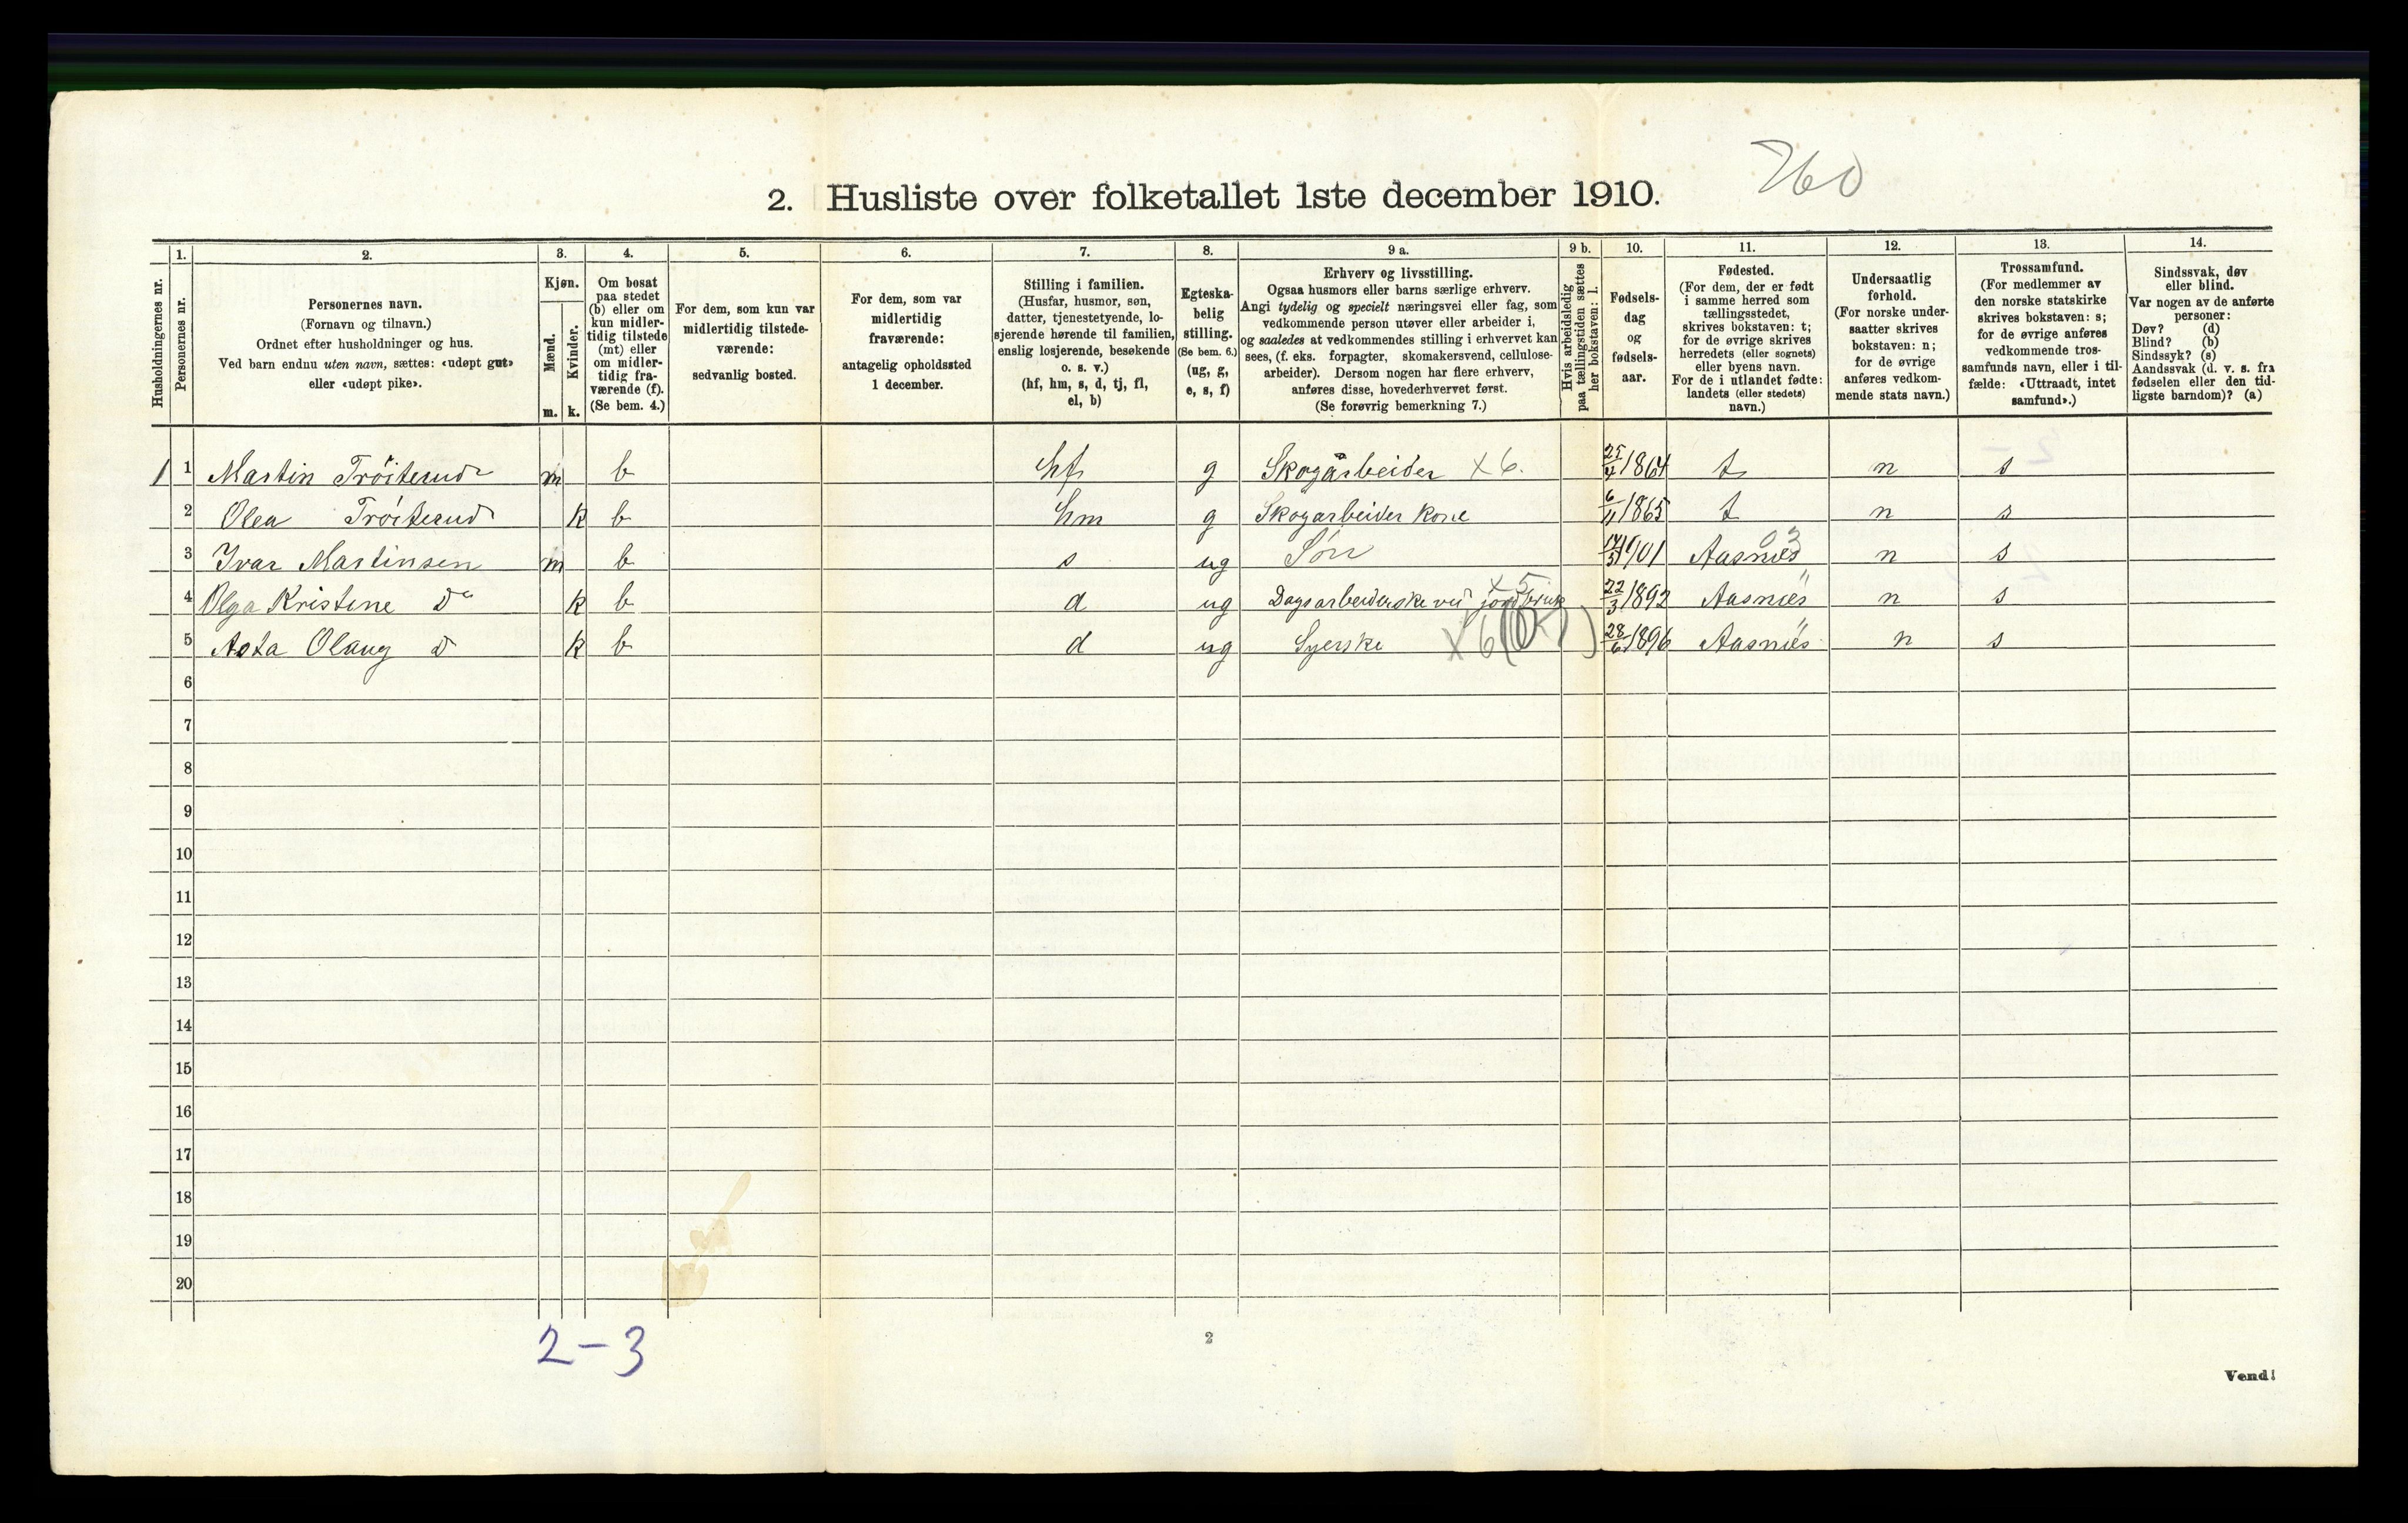 760
2. Husliste over folketallet 1ste december 1910.
Husholdningernes nr.
1.
Personernes nr.
2.
Personernes navn.
(Fornavn og tilnavn.)
Ordnet efter husholdninger og hus.
Ved barn endnu uten navn, sættes: «udøpt gut»
eller «udøpt pike».
3.
Kjøn.
Mænd.
m.
Kvinder.
k.
4.
Om bosat
paa stedet
(b) eller om
kun midler-
tidig tilstede
(mt) eller
om midler-
tidig fra-
værende (f).
(Se bem. 4.)
5.
For dem, som kun var
midlertidig tilstede-
værende:
sedvanlig bosted.
6.
For dem, som var
midlertidig
fraværende:
antagelig opholdssted
1 december.
7.
Stilling i familien.
(Husfar, husmor, søn,
datter, tjenestetyende, lo-
sjerende hørende til familien,
enslig losjerende, besøkende
o. s. v.)
(hf, hm, s, d, tj, fl,
el, b)
8.
Egteska-
belig
stilling.
(Se bem. 6.)
(ug, g,
e, s, f)
9 a.
Erhverv og livsstilling.
Ogsaa husmors eller barns særlige erhverv.
Angi tydelig og specielt næringsvei eller fag, som
vedkommende person utøver eller arbeider i,
og saaledes at vedkommendes stilling i erhvervet kan
sees, (f. eks. forpagter, skomakersvend, cellulose-
arbeider). Dersom nogen har flere erhverv,
anføres disse, hovederhvervet først.
(Se forøvrig bemerkning 7.)
9 b.
Hvis arbeidsledig
paa tællingstiden sættes
her bokstaven: l.
10.
Fødsels-
dag
og
fødsels-
aar.
11.
Fødested.
(For dem, der er født
i samme herred som
tællingsstedet,
skrives bokstaven: t;
for de øvrige skrives
herredets (eller sognets)
eller byens navn.
For de i utlandet fødte:
landets (eller stedets)
navn.)
12.
Undersaatlig
forhold.
(For norske under-
saatter skrives
bokstaven: n;
for de øvrige
anføres vedkom-
mende stats navn.)
13.
Trossamfund.
(For medlemmer av
den norske statskirke
skrives bokstaven: s;
for de øvrige anføres
vedkommende tros-
samfunds navn, eller i til-
fælde: «Uttraadt, intet
samfund».)
14.
Sindssvak, døv
eller blind.
Var nogen av de anførte
personer:
Døv? (d)
Blind? (b)
Sindssyk? (s)
Aandssvak (d. v. s. fra
fødselen eller den tid-
ligste barndom)? (a)
1 1 Martin Tröiterud m b hf g Skogarbeider x6. 1864 t n s
2 Olea Tröiterud k b hm g Skogarbeider kone 6/11 1865 t n s
03
3 Ivar Martinsen m b s ug Søn 1901 Aasnæs n s
x5
4 Olga Kristine Do k b d ug Dagsarbeiderske ved jordbruk 22/3 1892 Aasnæs n s
5 Asta Olaug d k b d ug Syerske x6 28/6 1896 Aasnæs n s
6
7
8
9
10
11
12
13
14
15
16
17
18
19
20
2-3
2
Vend!